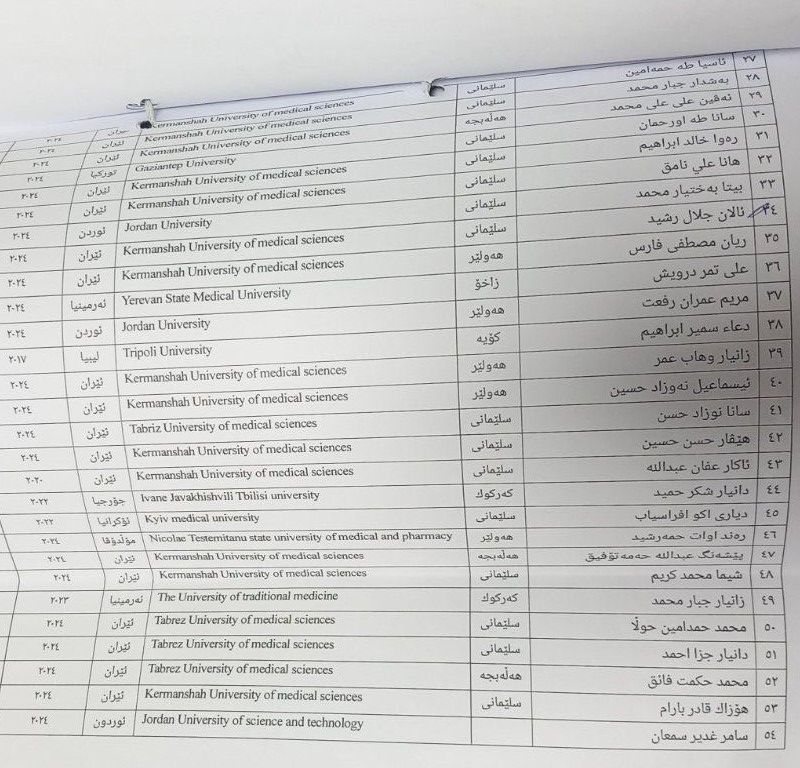 ٢٧ ئاسیا طه حمەامین سلێمانی Kermanshah University of medical sciences ٢٠٢٤
٢٨ بەشدار جبار محمد سلێمانی Kermanshah University of medical sciences ئێران ٢٠٢٤
٢٩ ئەڤین علی علی محمد هەڵەبجە Kermanshah University of medical sciences ئێران ٢٠٢٤
٣٠ سانا طه اورحمان سلێمانی Gaziantep University تورکیا ٢٠٢٤
٣١ رەوا خالد ابراهیم سلێمانی Kermanshah University of medical sciences ئێران ٢٠٢٤
٣٢ هانا علي نامق سلێمانی Kermanshah University of medical sciences ئێران ٢٠٢٤
٣٣ بیتا بەختیار محمد سلێمانی Jordan University ئوردن ٢٠٢٤
٣٤ ئالان جلال رشید سلێمانی Kermanshah University of medical sciences ئێران ٢٠٢٤
٣٥ ریان مصطفی فارس هەولێر Kermanshah University of medical sciences ئێران ٢٠٢٤
٣٦ علی تمر درویش زاخۆ Yerevan State Medical University ئەرمینیا ٢٠٢٤
٣٧ مریم عمران رفعت هەولێر Jordan University ئوردن ٢٠٢٤
٣٨ دعاء سمیر ابراهیم کۆیە Tripoli University لیبیا ٢٠١٧
٣٩ زانیار وهاب عمر هەولێر Kermanshah University of medical sciences ئێران ٢٠٢٤
٤٠ ئیسماعیل نەوزاد حسین هەولێر Kermanshah University of medical sciences ئێران ٢٠٢٤
٤١ سانا نوزاد حسن سلێمانی Tabriz University of medical sciences ئێران ٢٠٢٤
٤٢ هێڤار حسن حسین سلێمانی Kermanshah University of medical sciences ئێران ٢٠٢٤
٤٣ ئاکار عفان عبدالله سلێمانی Kermanshah University of medical sciences ئێران ٢٠٢٠
٤٤ دانیار شکر حمید کەرکوك Ivane Javakhishvili Tbilisi university جۆرجیا ٢٠٢٢
٤٥ دیاری اکو افراسیاب سلێمانی Kyiv medical university ئۆکرانیا ٢٠٢٢
٤٦ رەند اوات حمەرشید هەولێر Nicolae Testemitanu state university of medical and pharmacy مۆڵدۆڤا ٢٠٢٤
٤٧ پێشەنگ عبدالله حەمەتۆفیق هەڵەبجە Kermanshah University of medical sciences ئێران ٢٠٢٤
٤٨ شیما محمد کریم سلێمانی Kermanshah University of medical sciences ئێران ٢٠٢٤
٤٩ زانیار جبار محمد کەرکوك The University of traditional medicine ئەرمینیا ٢٠٢٣
٥٠ محمد حمدامین حولا سلێمانی Tabrez University of medical sciences ئێران ٢٠٢٤
٥١ دانیار جزا احمد سلێمانی Tabrez University of medical sciences ئێران ٢٠٢٤
٥٢ محمد حکمت فائق هەڵەبجە Tabrez University of medical sciences ئێران ٢٠٢٤
٥٣ هۆزاك قادر بارام سلێمانی Kermanshah University of medical sciences ئێران ٢٠٢٤
٥٤ سامر غدیر سمعان Jordan University of science and technology ئوردون ٢٠٢٤